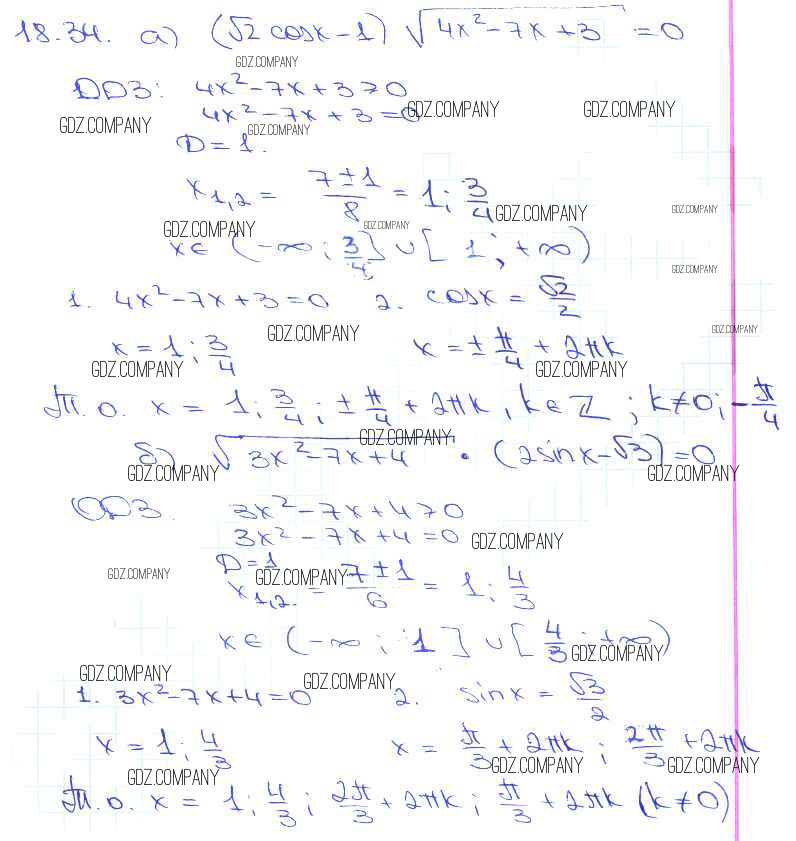 18.34. а) (√2 cosx − 1) √(4x² − 7x + 3) = 0
GDZ.COMPANY
ОДЗ: 4x² − 7x + 3 ≥ 0
4x² − 7x + 3 = 0 GDZ.COMPANY GDZ.COMPANY
GDZ.COMPANY GDZ.COMPANY
D = 1.
x₁,₂ = (7 ± 1)/8 = 1; 3/4 GDZ.COMPANY GDZ.COMPANY
GDZ.COMPANY GDZ.COMPANY
x ∈ (−∞; 3/4] ∪ [1; +∞)
GDZ.COMPANY
1. 4x² − 7x + 3 = 0 2. cosx = √2/2
GDZ.COMPANY GDZ.COMPANY
x = 1; 3/4 x = ± π/4 + 2πk
GDZ.COMPANY GDZ.COMPANY
Т.о. x = 1; 3/4; ± π/4 + 2πk, k ∈ Z; k ≠ 0; − π/4
GDZ.COMPANY
б) √(3x² − 7x + 4) · (2sinx − √3) = 0
GDZ.COMPANY GDZ.COMPANY
ОДЗ. 3x² − 7x + 4 ≥ 0
3x² − 7x + 4 = 0 GDZ.COMPANY
D = 1
GDZ.COMPANY GDZ.COMPANY
x₁,₂ = (7 ± 1)/6 = 1; 4/3
x ∈ (−∞; 1] ∪ [4/3; +∞)
GDZ.COMPANY
GDZ.COMPANY GDZ.COMPANY
1. 3x² − 7x + 4 = 0 2. sinx = √3/2
x = 1; 4/3 x = π/3 + 2πk; 2π/3 + 2πk
GDZ.COMPANY GDZ.COMPANY GDZ.COMPANY
Т.о. x = 1; 4/3; 2π/3 + 2πk; π/3 + 2πk (k ≠ 0)